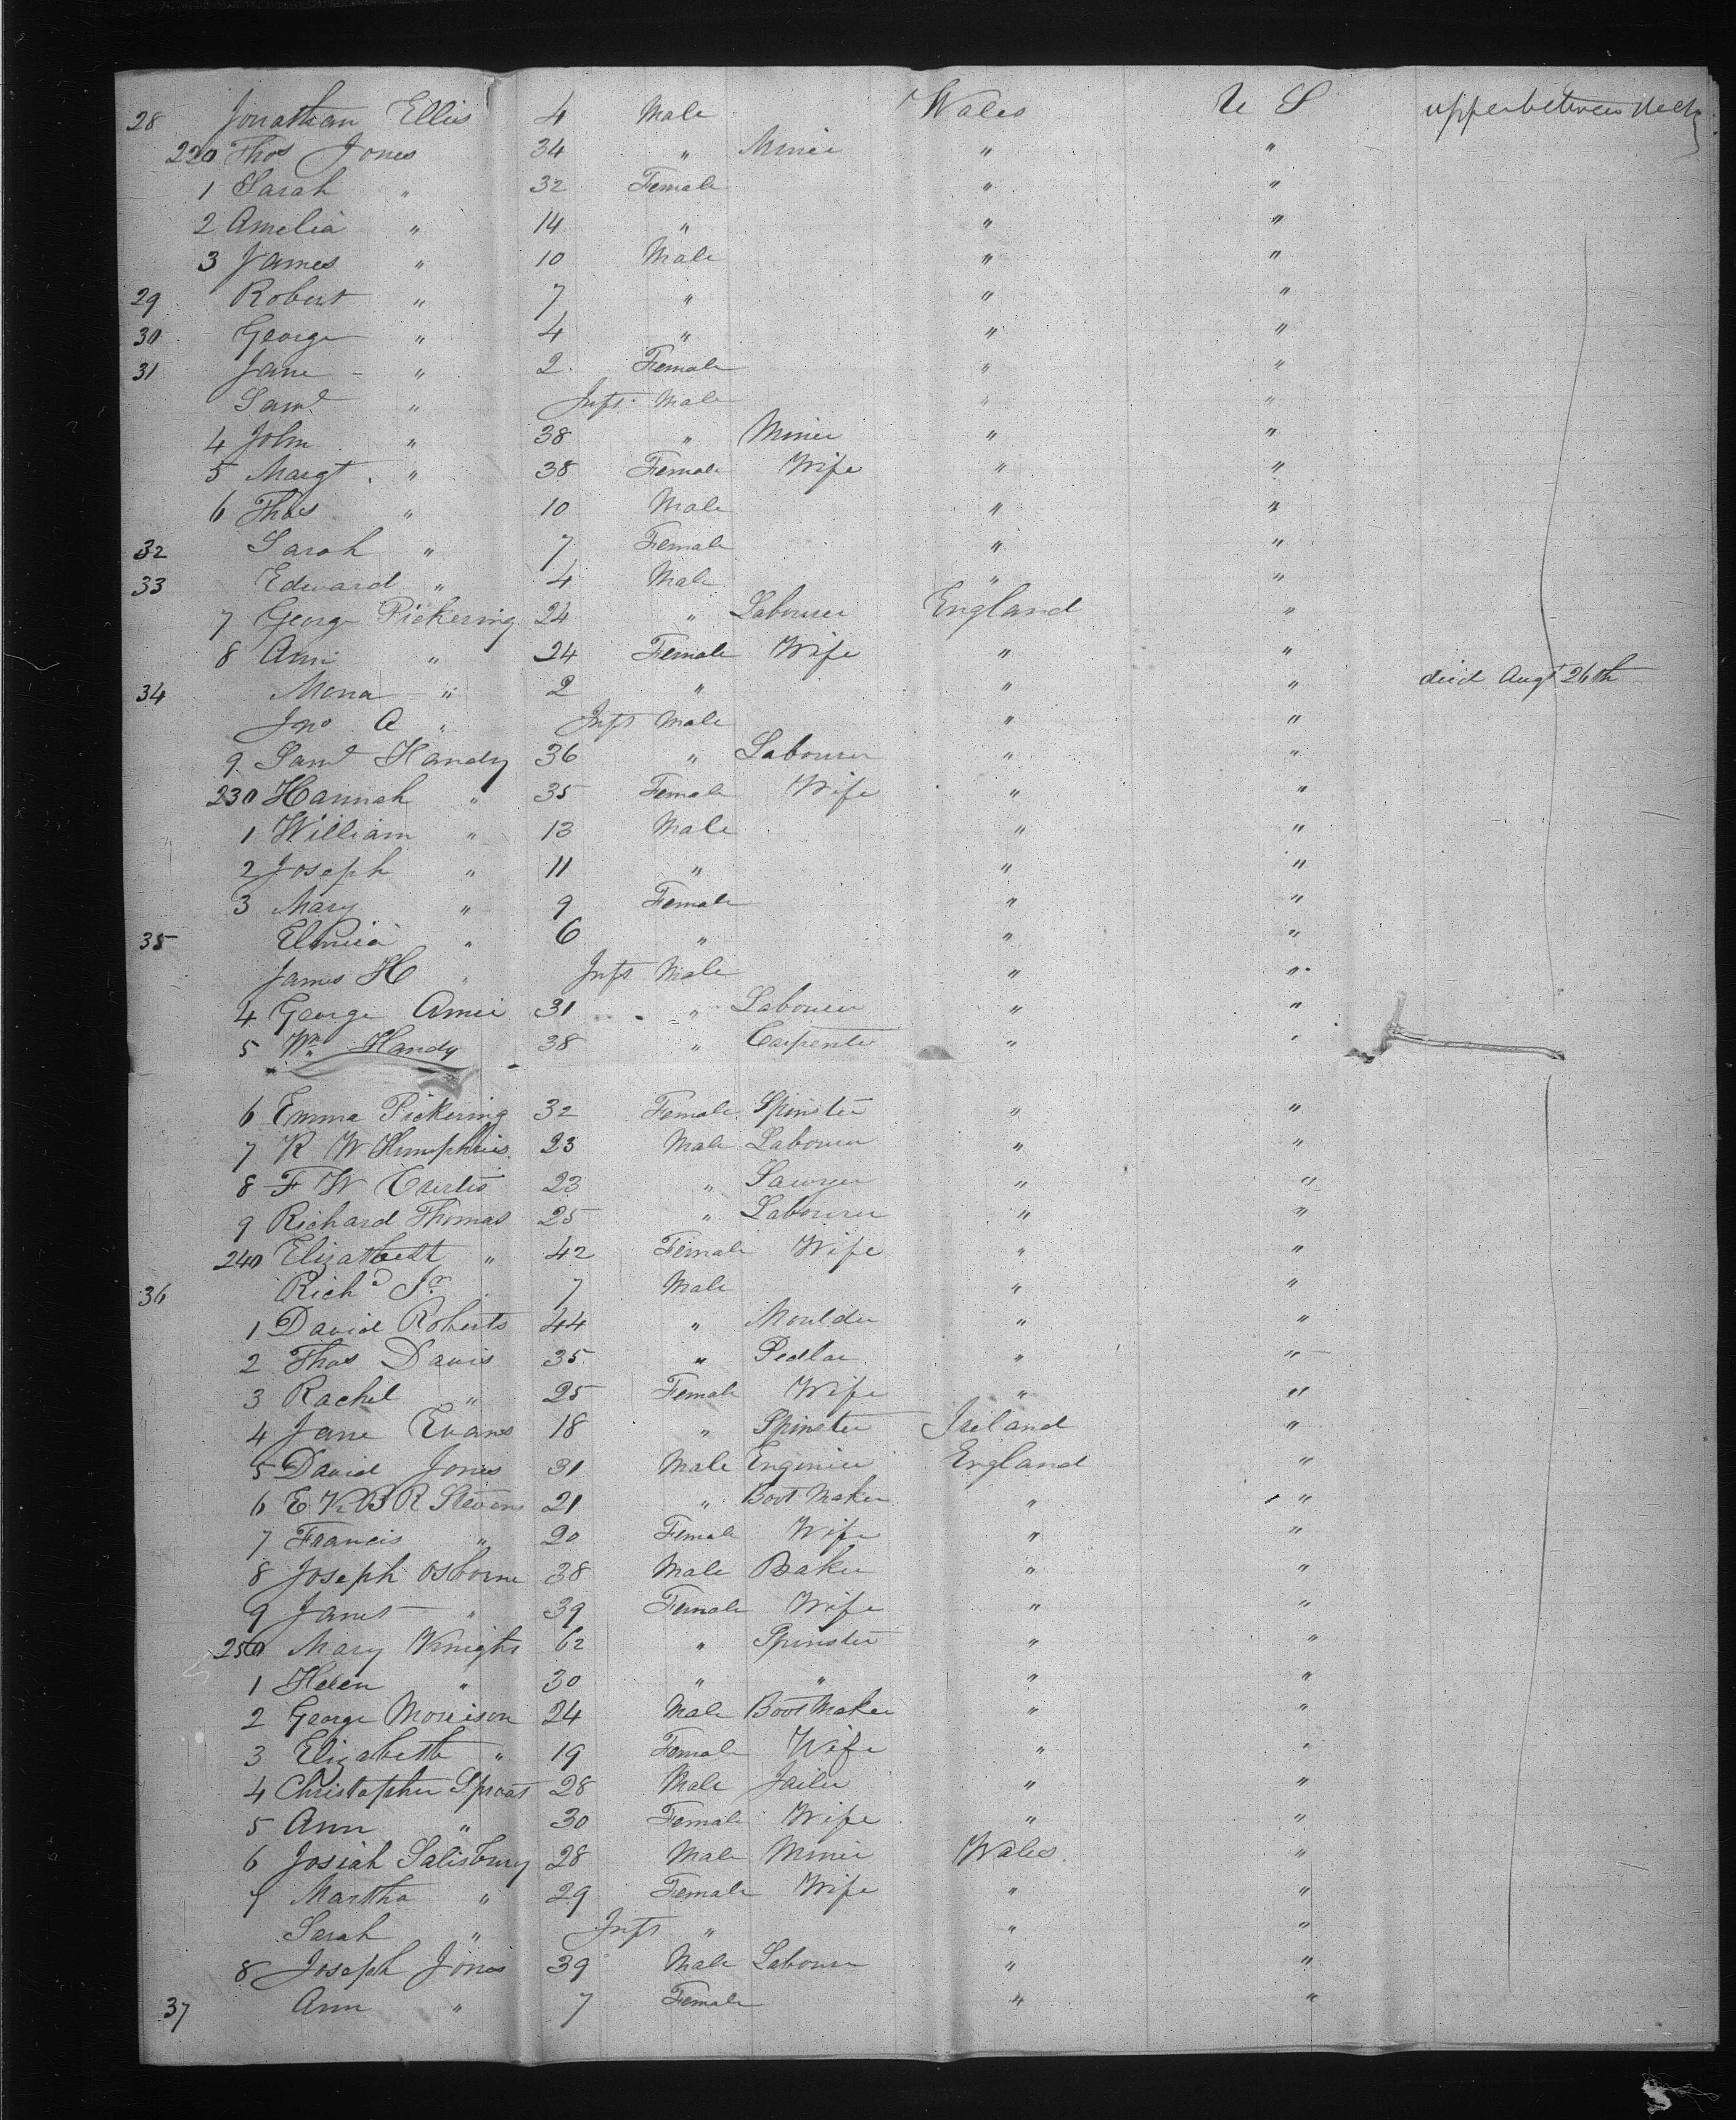 28 Jonathan Ellis 4 Male Wales U S upper between decks
220 Thos Jones 34 " Miner " "
1 Sarah " 32 Female " "
2 Amelia " 14 " " "
3 James " 10 Male " "
29 Robert " 7 " " "
30 George " 4 " " "
31 Jane " 2 Female " "
Saml " Inft Male " "
4 John " 38 " Miner " "
5 Margt " 38 Female Wife " "
6 Thos " 10 Male " "
32 Sarah " 7 Female " "
33 Edward " 4 Male " "
7 George Pickering 24 " Labourer England "
8 Ann " 24 Female Wife " "
34 Mona " 2 " " " died Augt 26th
Jno A " Inft Male " "
9 Saml Handy 36 " Labourer " "
230 Hannah " 35 Female Wife " "
1 William " 13 Male " "
2 Joseph " 11 " " "
3 Mary " 9 Female " "
35 " 6 " " "
James H " Inft Male " "
4 George 31 " Labourer " "
5 Wm Handy 38 " Carpenter " "
6 Emma Pickering 32 Female Spinster " "
7 R W Humphries 23 Male Labourer " "
8 F W Curtis 23 " Sawyer " "
9 Richard Thomas 25 " Labourer " "
240 Elizabeth " 42 Female Wife " "
36 Richd Jr 7 Male " "
1 David Roberts 44 " Moulder " "
2 Thos Davis 35 " Pedlar " "
3 Rachel " 25 Female Wife " "
4 Jane Evans 18 " Spinster Ireland "
5 David Jones 31 Male Engineer England "
6 E K B R Stevens 21 " Boot Maker " "
7 Francis " 20 Female Wife " "
8 Joseph Osborne 38 Male Baker " "
9 Janet " 39 Female Wife " "
250 Mary Knight 62 " Spinster " "
1 Helen " 30 " " " "
2 George Morrison 24 Male Boot Maker " "
3 Elizabeth " 19 Female Wife " "
4 Christopher Sproat 28 Male " "
5 Ann " 30 Female Wife " "
6 Josiah Salisbury 28 Male Miner Wales "
7 Martha " 29 Female Wife " "
Sarah " Inft " " "
8 Joseph Jones 39 Male Labourer " "
37 Ann " 7 Female " "